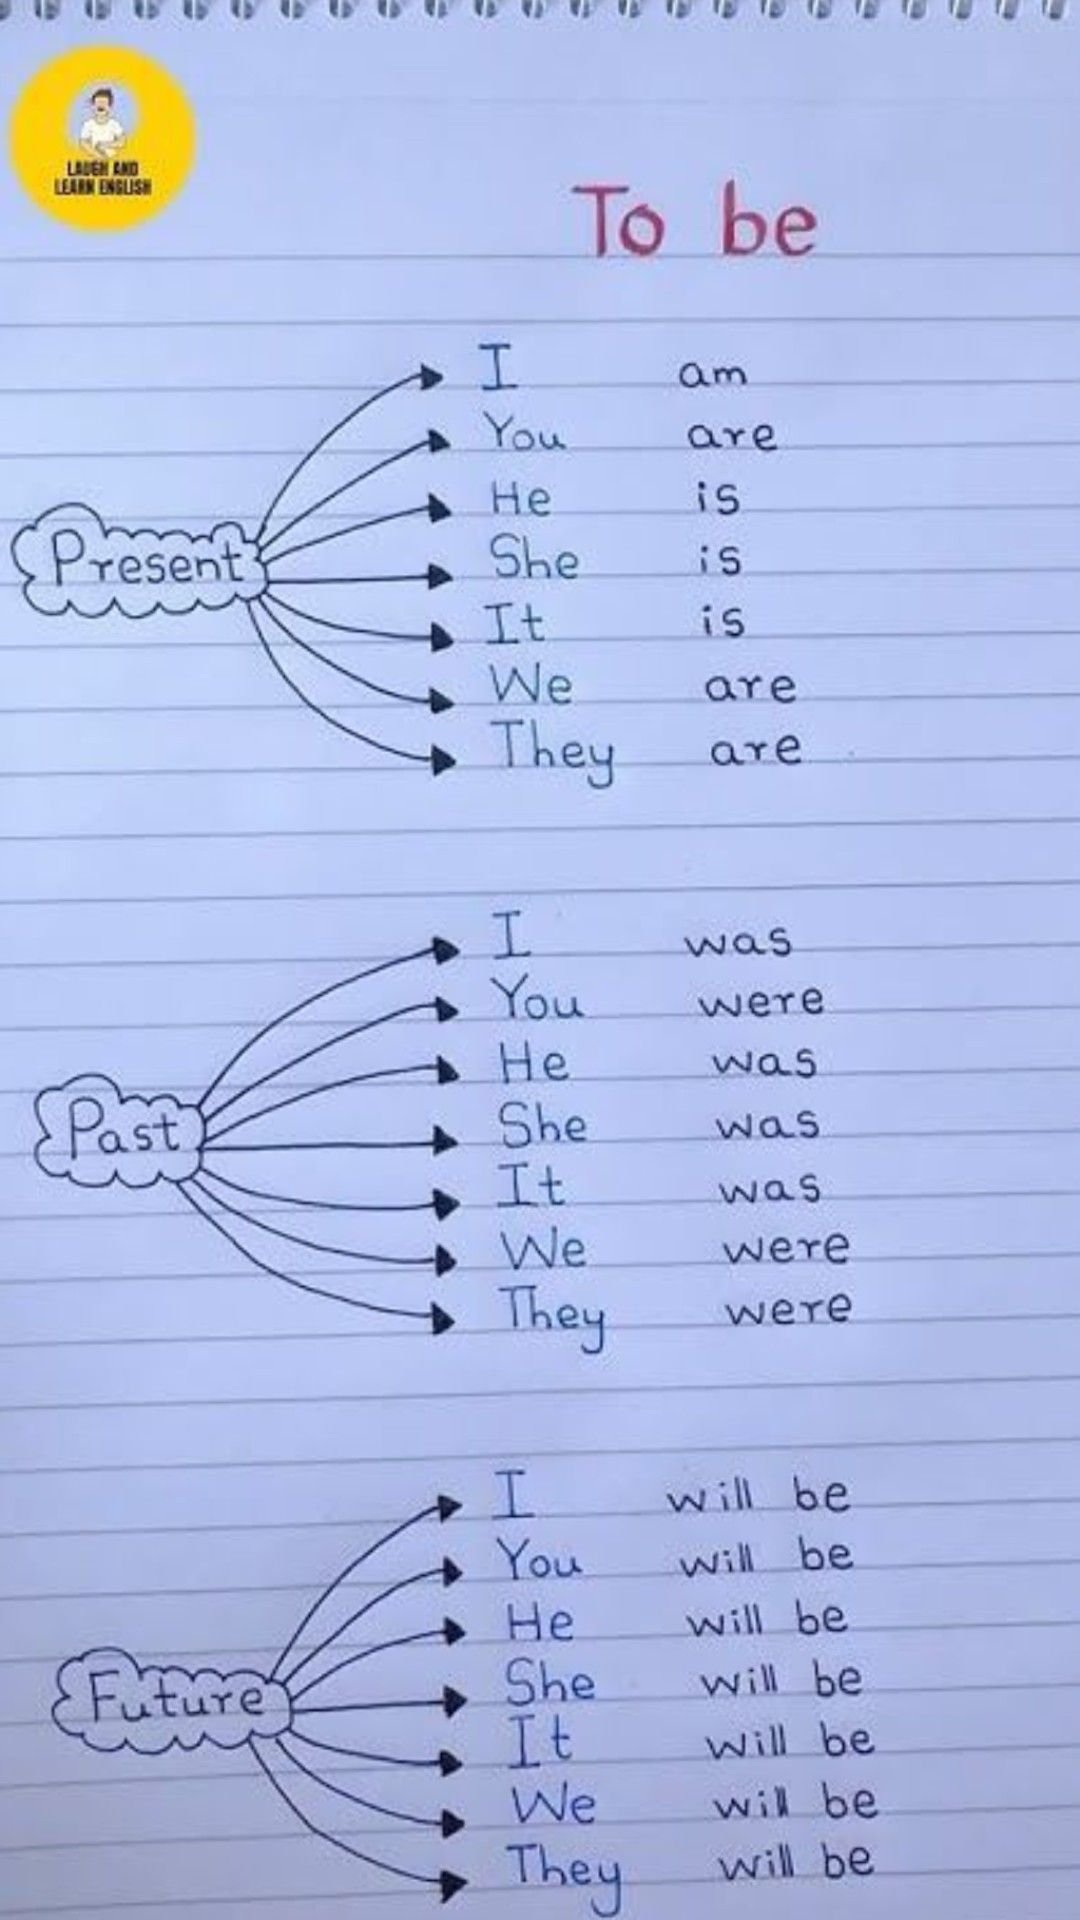 LAUGH AND
LEARN ENGLISH
To be
Present
I am
You are
He is
She is
It is
We are
They are
Past
I was
You were
He was
She was
It was
We were
They were
Future
I will be
You will be
He will be
She will be
It will be
We will be
They will be